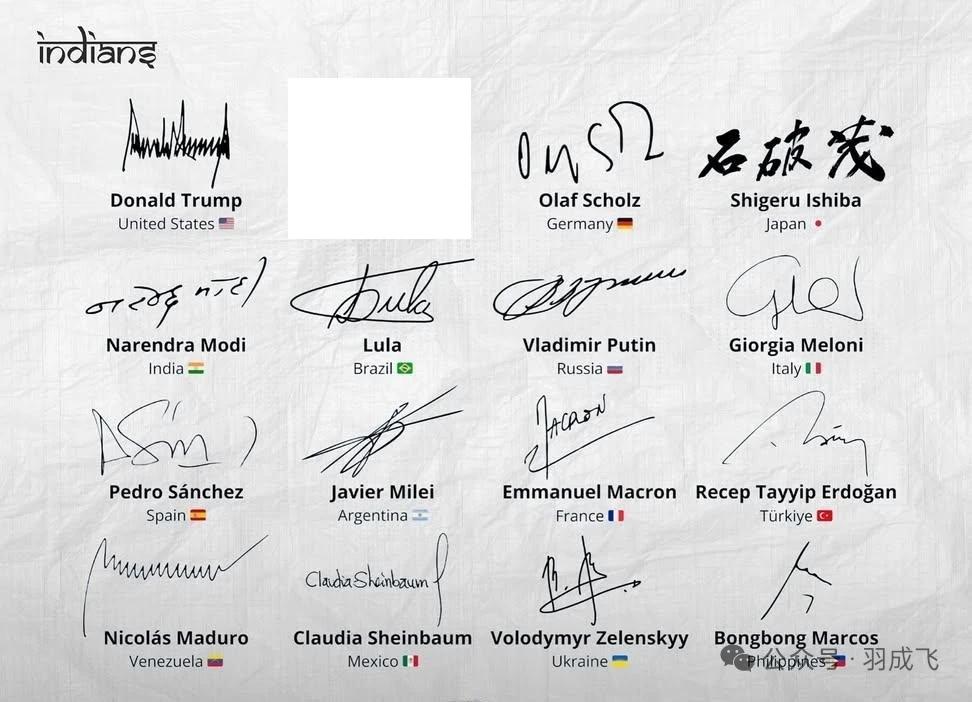 indians
Donald Trump
United States
Olaf Scholz
Germany
石破茂
Shigeru Ishiba
Japan
नरेन्द्र मोदी
Narendra Modi
India
Lula
Lula
Brazil
Vladimir Putin
Russia
Giorgia Meloni
Italy
Pedro Sánchez
Spain
Javier Milei
Argentina
MACRON
Emmanuel Macron
France
Recep Tayyip Erdoğan
Türkiye
Nicolás Maduro
Venezuela
Claudia Sheinbaum
Claudia Sheinbaum
Mexico
Volodymyr Zelenskyy
Ukraine
Bongbong Marcos
Philippines
公众号 · 羽成飞